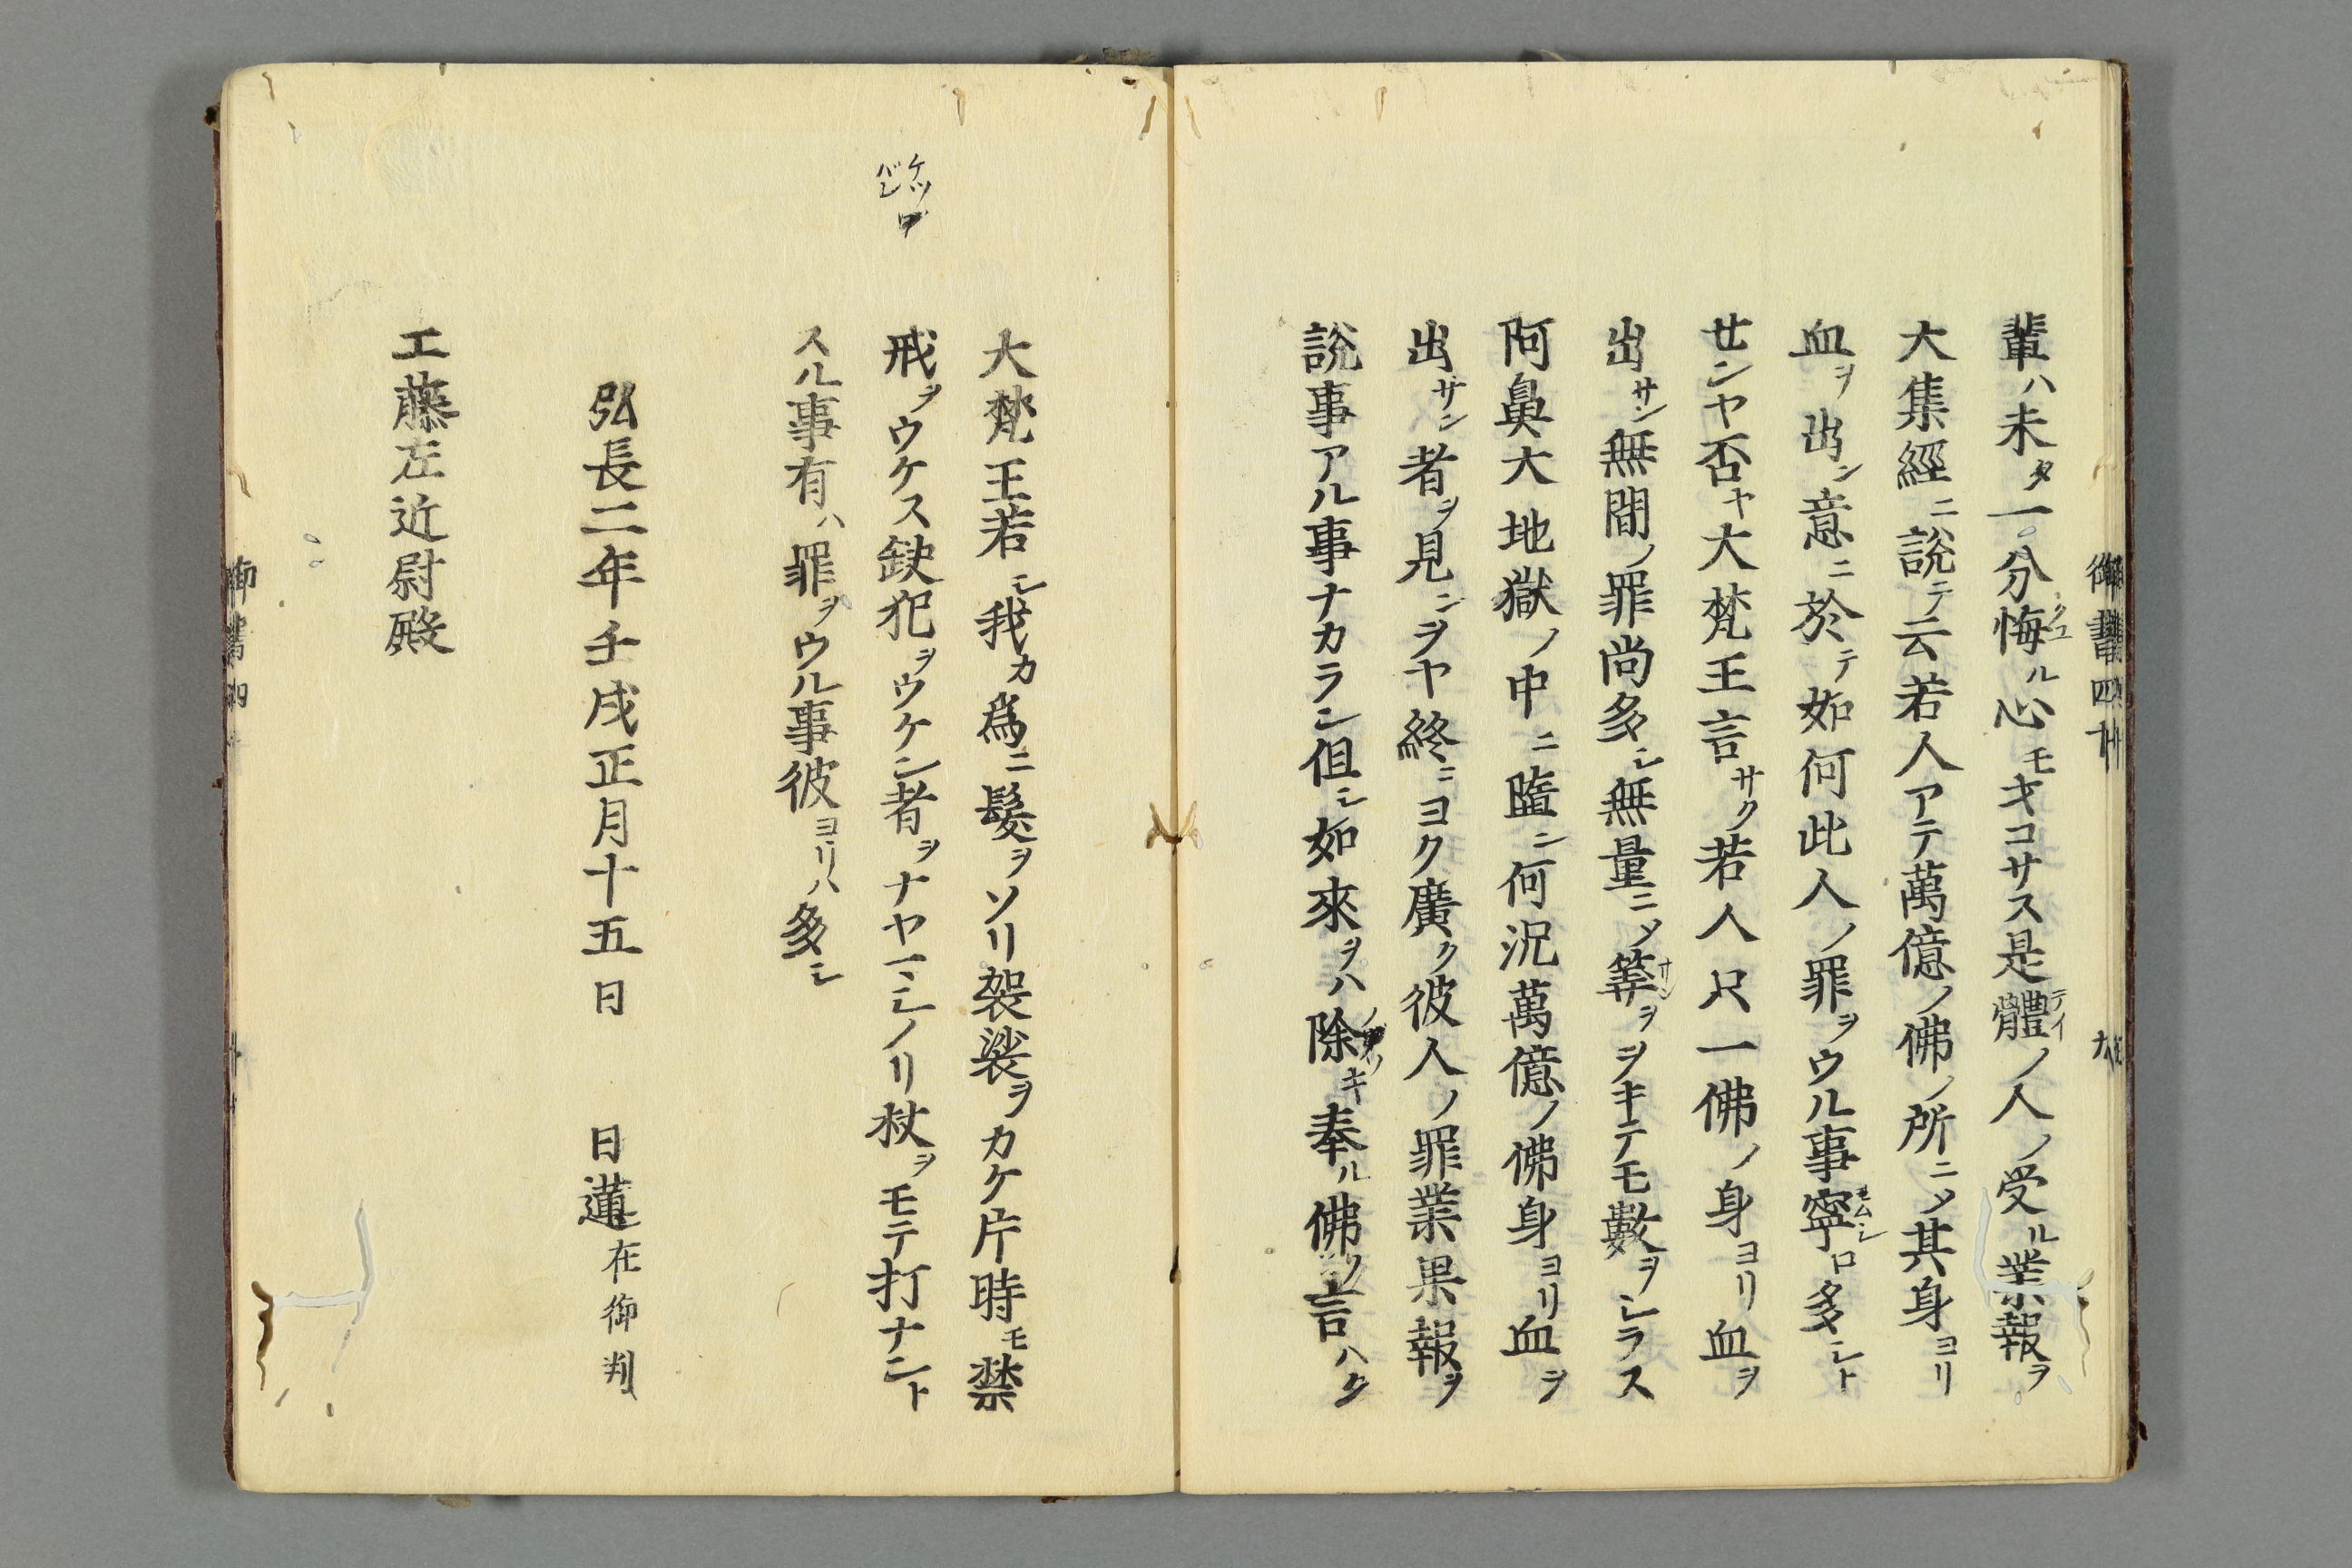 御書四十
輩ハ未タ一分悔ル心モヲコサス是體ノ人ノ受ル業報ヲ
大集經ニ說テ云若人アテ萬億ノ佛ノ所ニメ其身ヨリ
血ヲ出ン意ニ於テ如何此人ノ罪ヲウル事寧ロ多シト
せンヤ否ヤ大梵王言サク若人只一佛ノ身ヨリ血ヲ
出サン無間ノ罪尚多シ無量ニメ筭ヲヲキテモ數ヲシラス
阿鼻大地獄ノ中ニ墮ン何況萬億ノ佛身ヨリ血ヲ
出サン者ヲ見ンヲヤ終ニヨク廣ク彼人ノ罪業果報ヲ
說事アル事ナカラン但シ如來ヲハ除キ奉ル佛ノ言ハク
大梵王若シ我カ爲ニ髮ヲソリ袈裟ヲカケ片時モ禁
戒ヲウケス缺犯ヲウケン者ヲナヤマシノリ杖ヲモテ打ナント
スル事有ハ罪ヲウル事彼ヨリハ多シ
弘長二年壬戌正月十五日 日蓮在御判
工藤左近尉殿